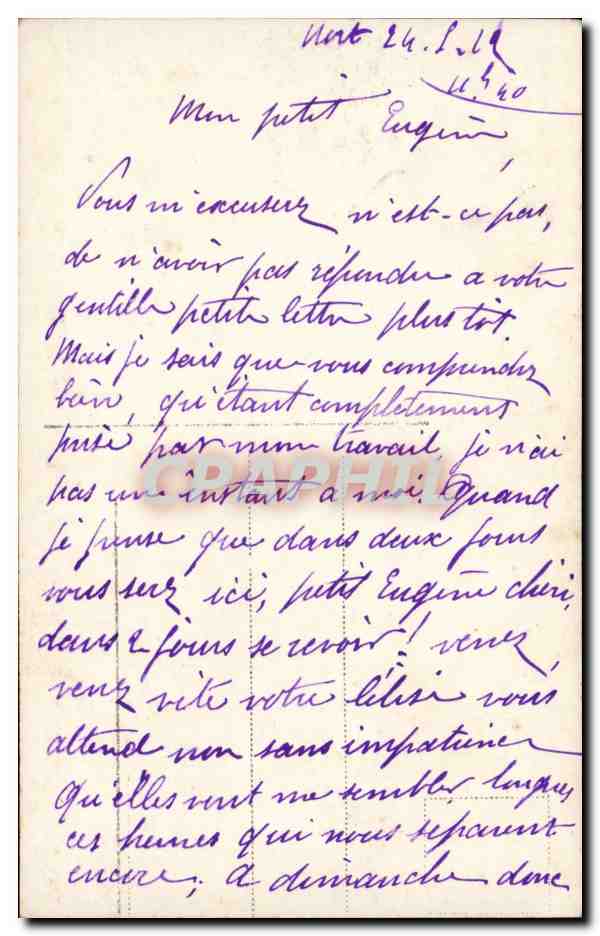 Niort 24.5.12
11h40
Mon petit Eugène,
Vous m'excuserez n'est-ce pas,
de n'avoir pas répondu a votre
gentille petite lettre plus tôt.
Mais je sais que vous comprendrez
bien, qu'étant complètement
prise par mon travail, je n'ai
pas une instant a moi. Quand
je pense que dans deux jours
vous serez ici, petit Eugène chéri,
dans 2 jours se revoir! venez,
venez vite votre Élise vous
attend non sans impatience
Qu'elles vont me sembler longues
ces heures qui nous séparent
encore, A dimanche donc
CPAPHIL